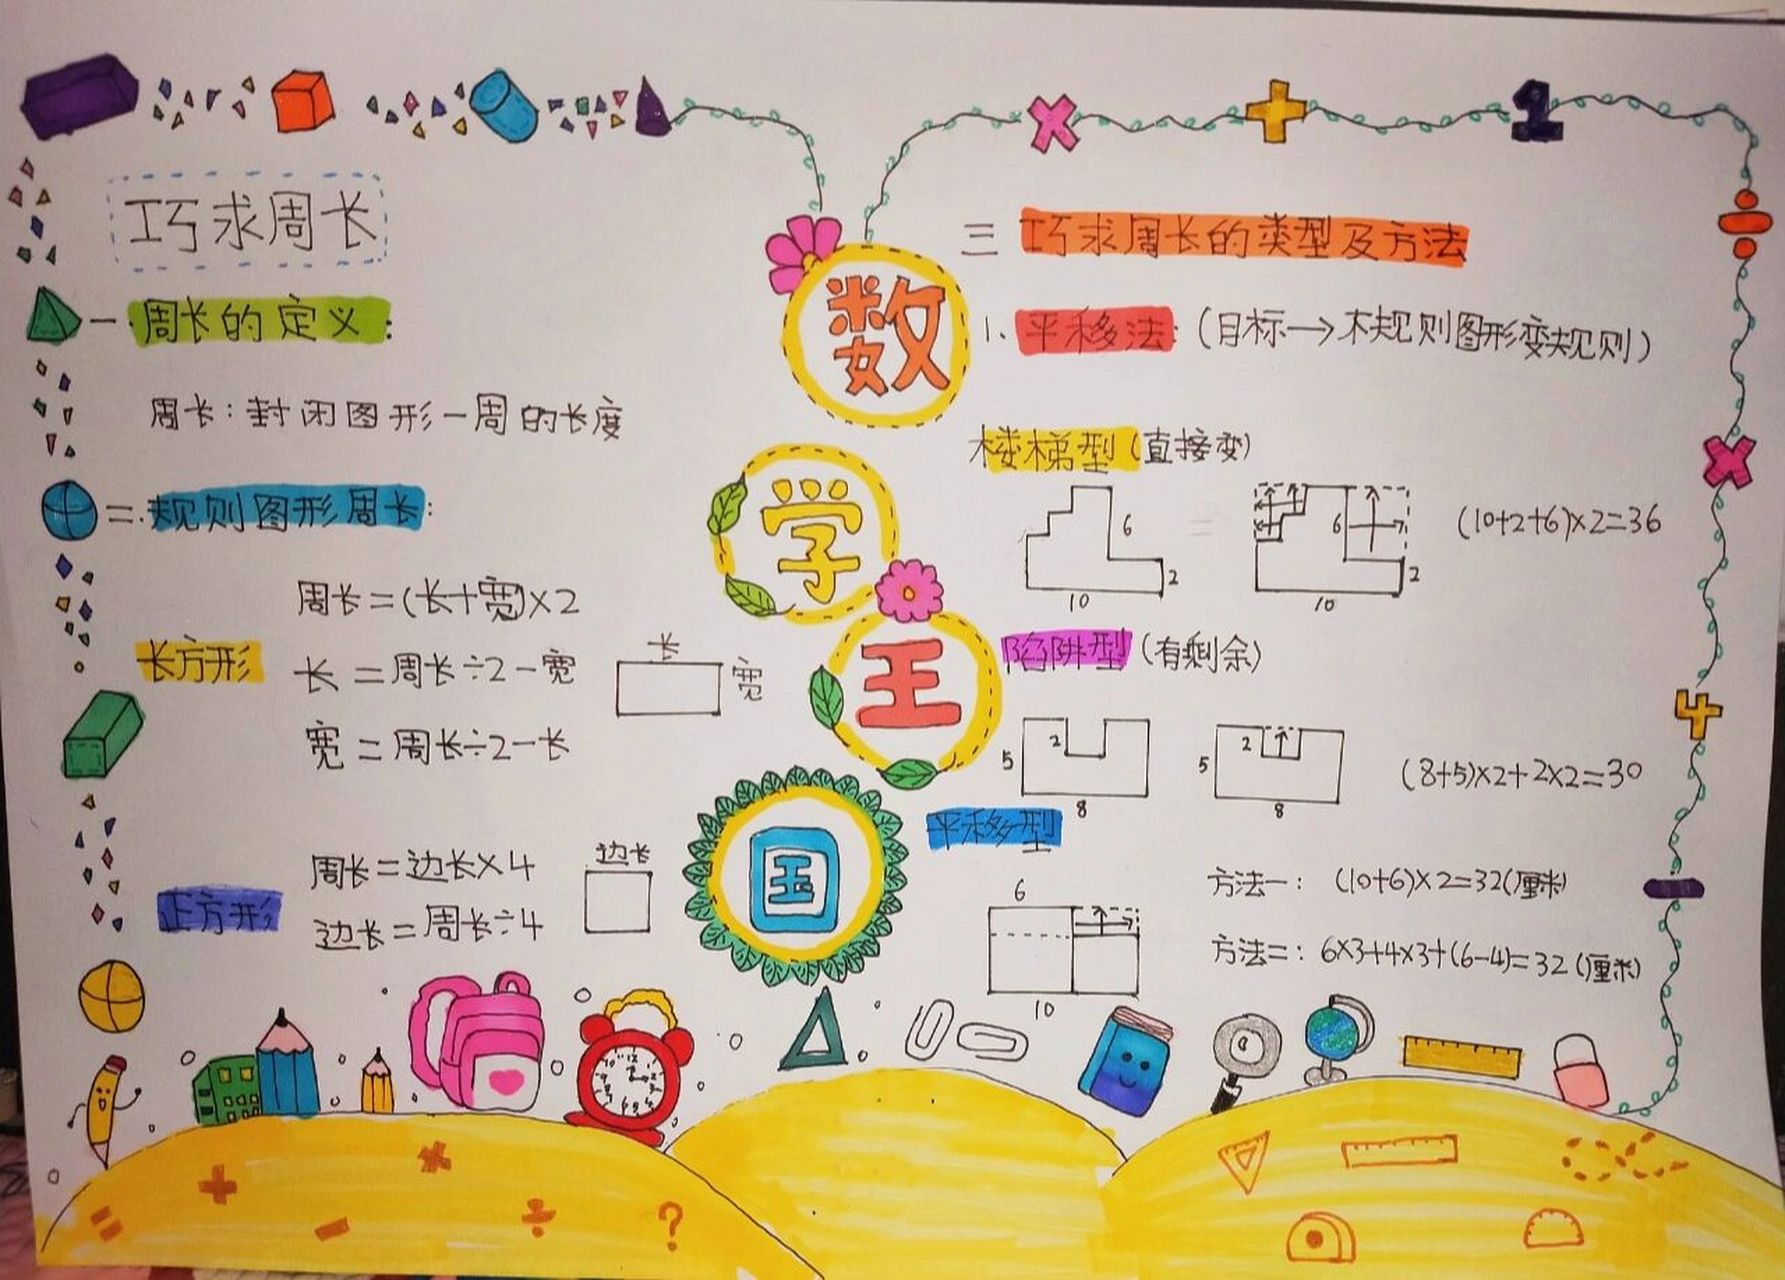 巧求周长
一.周长的定义:
周长:封闭图形一周的长度
二.规则图形周长:
长方形
周长=(长+宽)×2
长=周长÷2-宽
宽=周长÷2-长
长
宽
正方形
周长=边长×4
边长=周长÷4
边长
数
学
王
国
三 巧求周长的类型及方法
1.平移法:(目标→不规则图形变规则)
楼梯型(直接变)
6
2
10
=
6
2
10
(10+2+6)×2=36
陷阱型(有剩余)
5
2
8
5
2
8
(8+5)×2+2×2=30
平移型
6
10
方法一: (10+6)×2=32(厘米)
方法二: 6×3+4×3+(6-4)=32(厘米)
× + 1
÷
×
4
-
= + - × ÷ ?